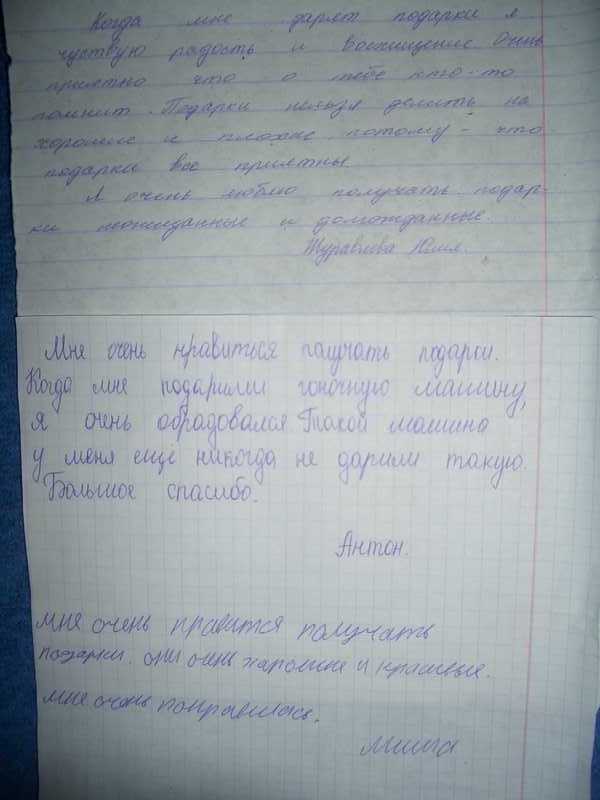 Когда мне дарят подарки я
чуствую радость и восхищение. Очень
приятно что о тебе кто-то
помнит. Подарки нельзя делить на
хорошие и плохие, потому-что
подарки все приятны.
Я очень люблю получать подар-
ки неожиданные и долгожданные.
Журавлева Юлия.
Мне очень нравиться палучать подарои.
Когда мне подарили гоночную машину,
я очень обрадовался Такой машино
у меня еще никогда не дарили такую.
Большое спасибо.
Антон.
мне очень нравится получать
подарки. они очень харошие и красивые.
мне очень понравилась.
миша